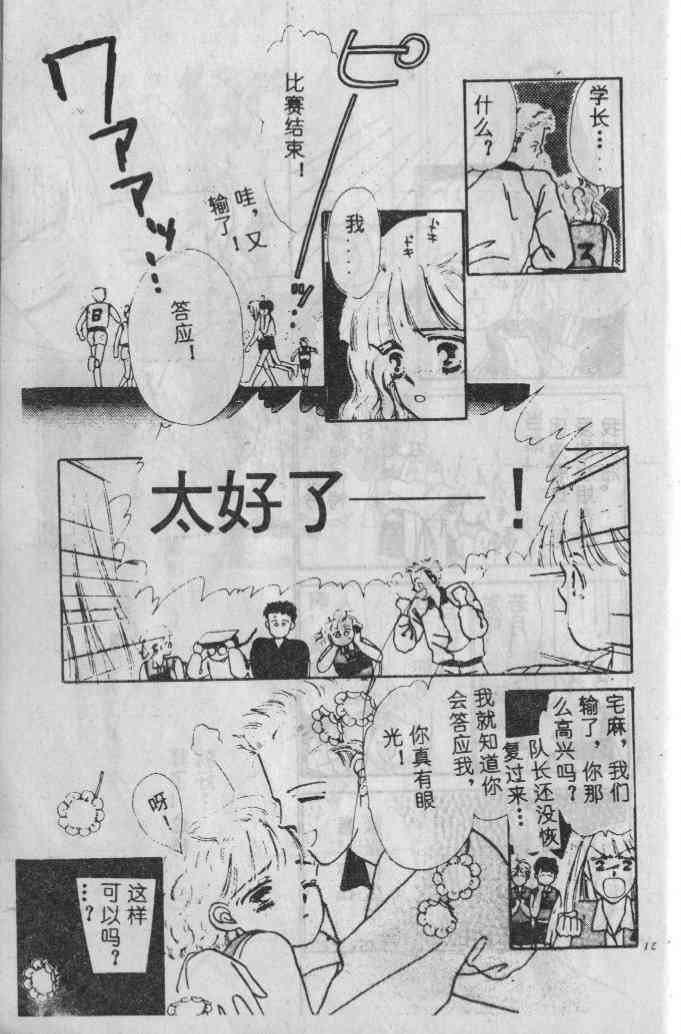 学长……
什么?
ドキ
ドキ
我
……
ピーッ…
比赛结束!
哇，又
输了!
ワァァァッ…
答应!
太好了——!
宅麻，我们
输了，你那
么高兴吗?
队长还没恢
复过来…
我就知道你
会答应我，
你真有眼
光!
呀!
这样
可以吗?
…?